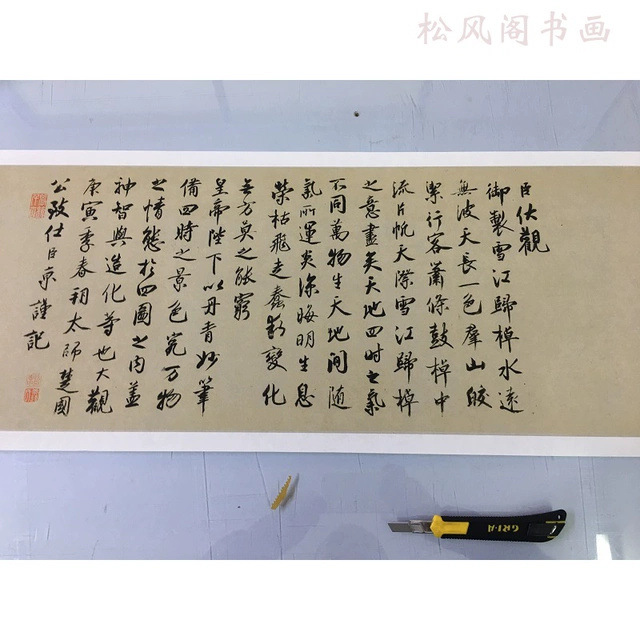 松风阁书画
臣伏觀
御製雪江歸棹水遠
無波天長一色羣山皎
潔行客蕭條鼓棹中
流片帆天際雪江歸棹
之意盡矣天地四时之氣
不同萬物生天地間随
氣所運炎涼晦明生息
榮枯飛走蠢動變化
無方莫之能窮
皇帝陛下以丹青妙筆
備四時之景色究万物
之情態於四圖之内蓋
神智與造化等也大觀
庚寅季春朔太師楚國
公致仕臣京謹記
GRI-A